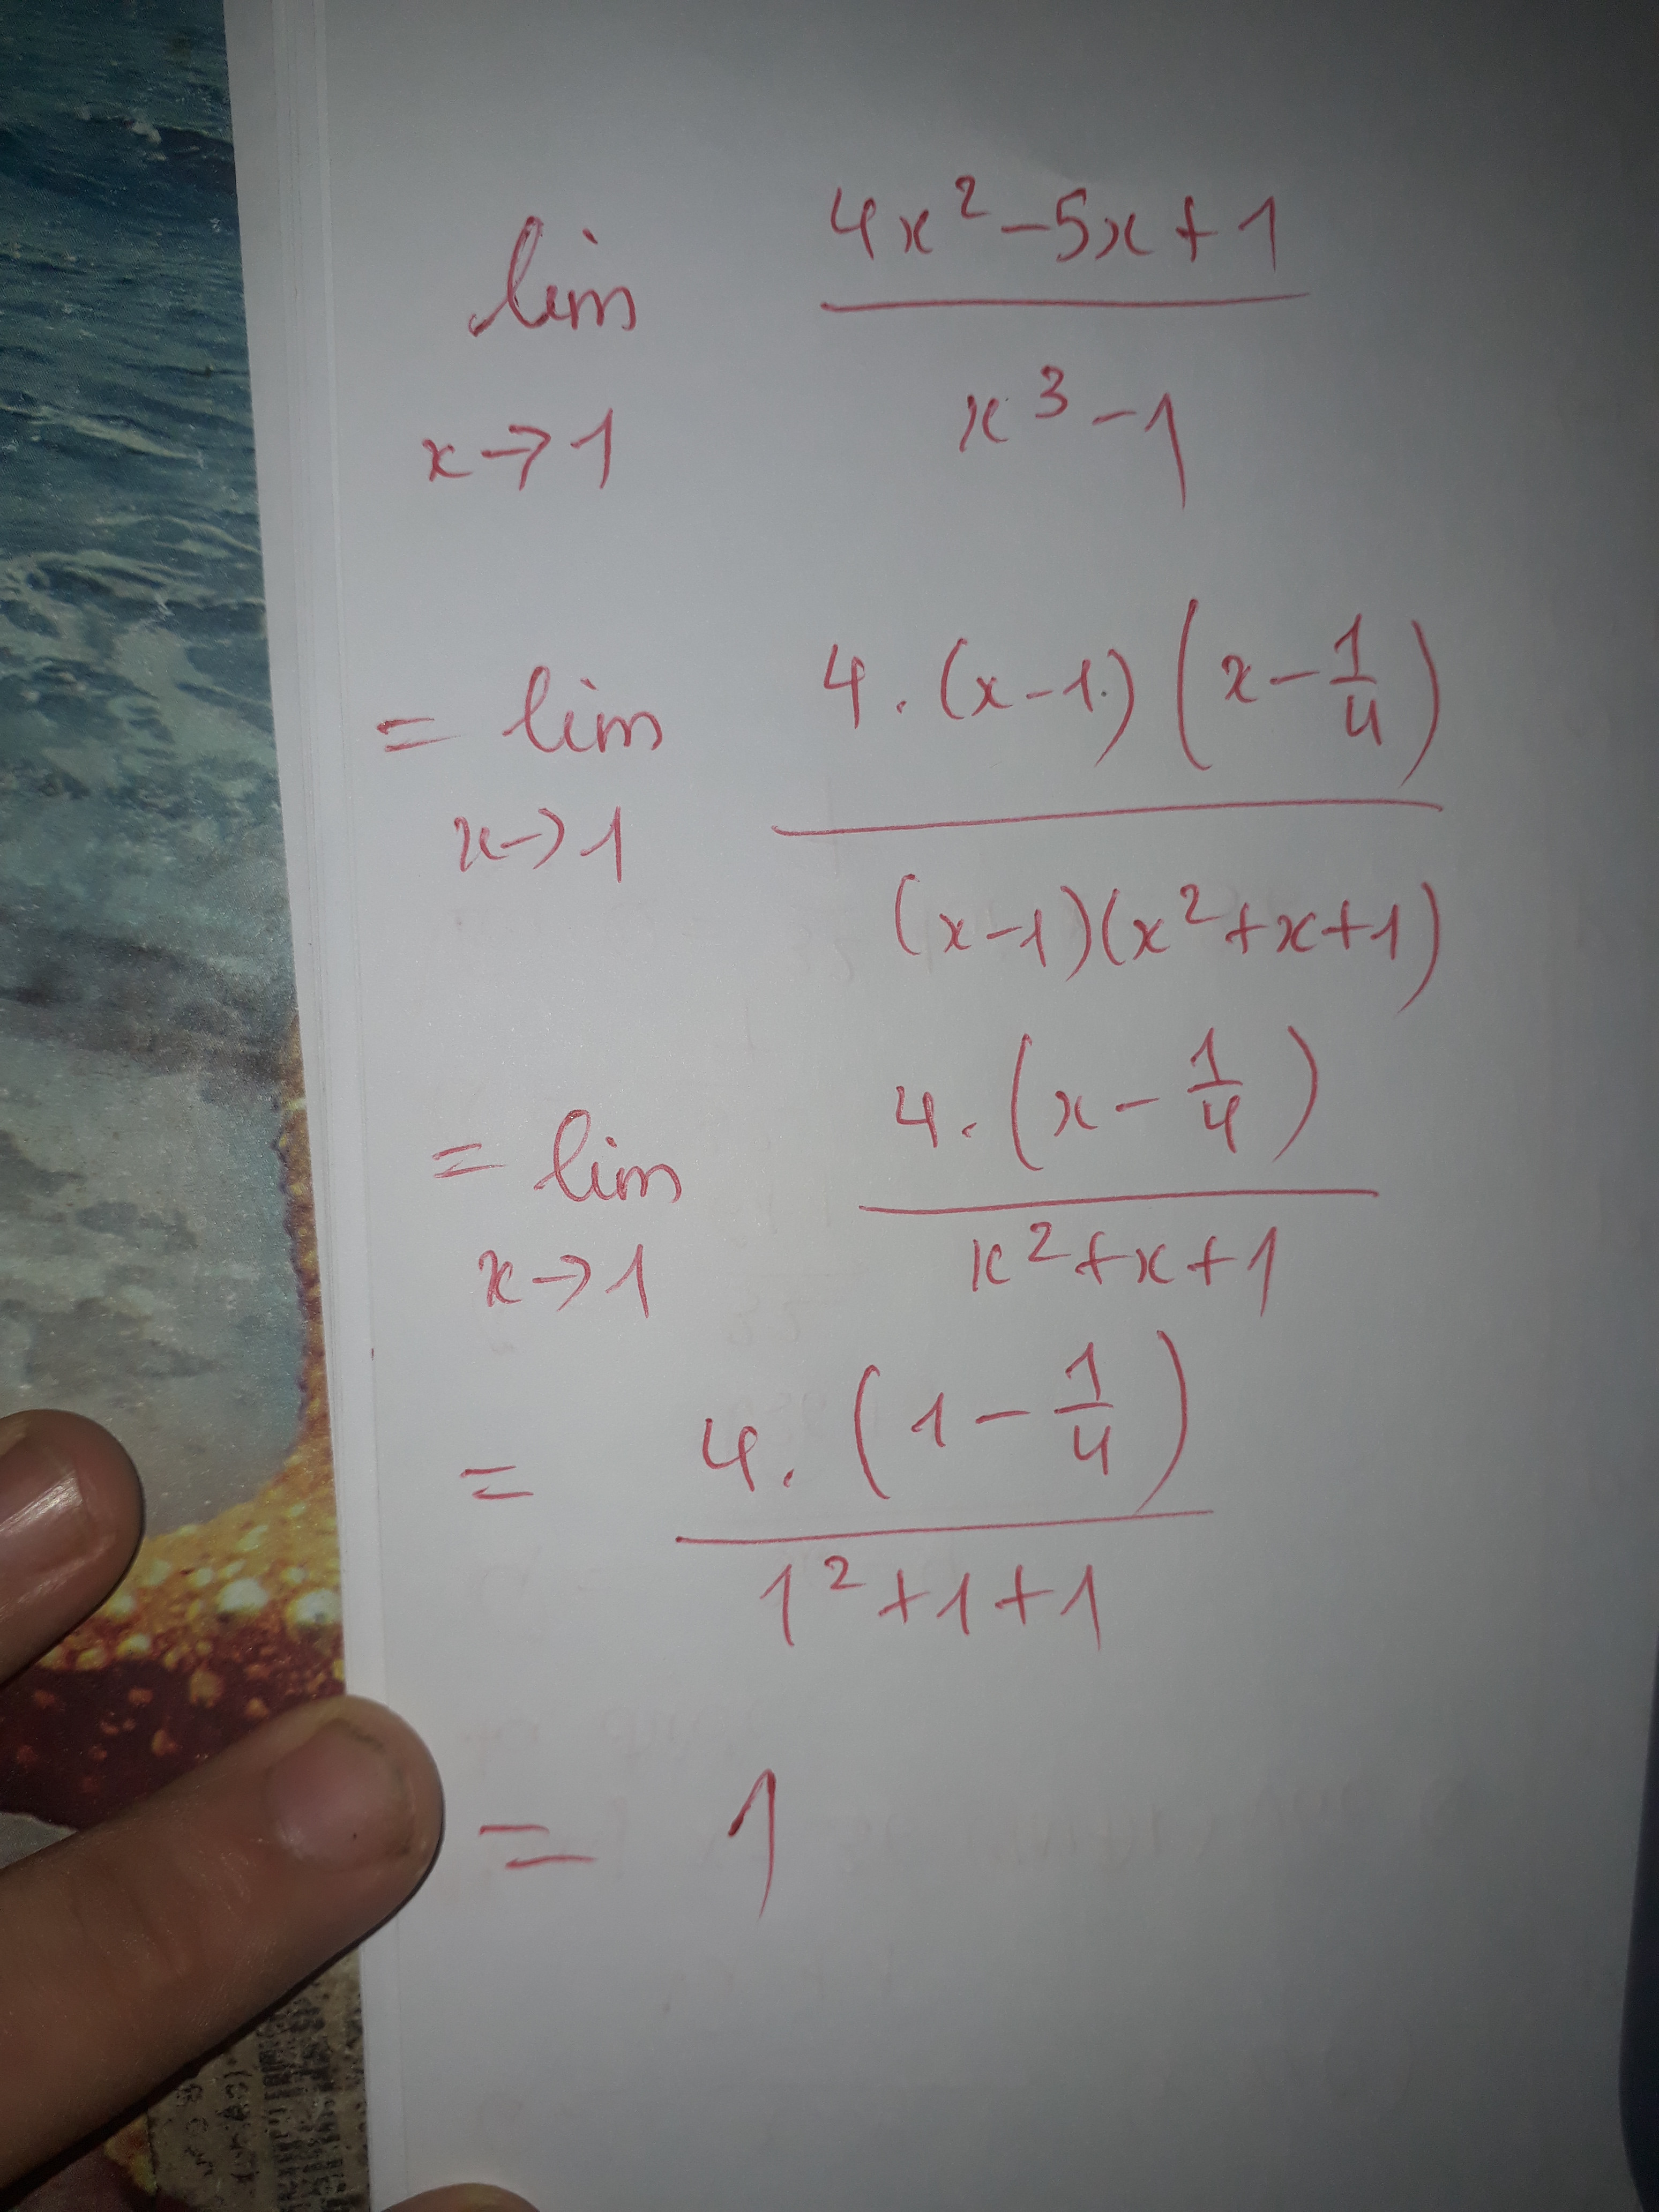 lim 4x² - 5x + 1
x → 1 x³ - 1
= lim 4 . (x - 1) (x - 1/4)
x → 1 (x - 1)(x² + x + 1)
= lim 4 . (x - 1/4)
x → 1 x² + x + 1
= 4 . (1 - 1/4)
1² + 1 + 1
= 1